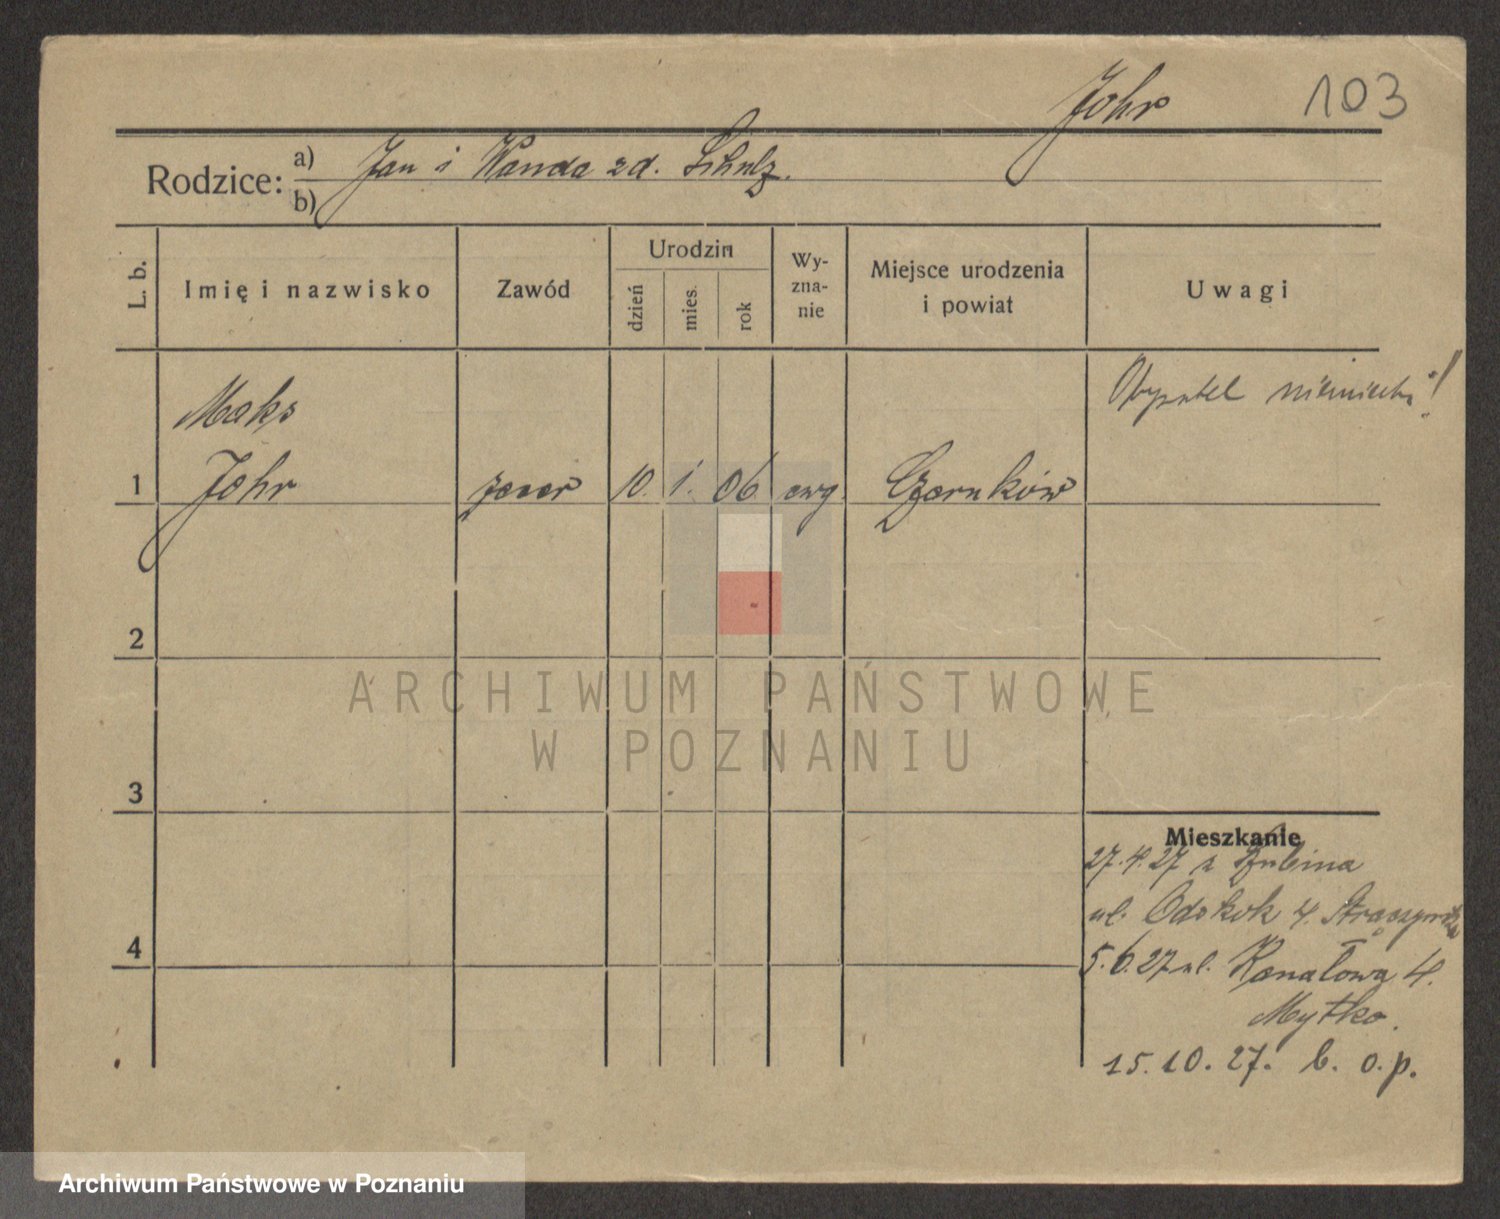 Johr 103
Rodzice: a) Jan i Wanda zd. Schulz.
b)
L. b. Imię i nazwisko Zawód Urodzin dzień mies. rok Wy-zna-nie Miejsce urodzenia i powiat Uwagi
Maks
Obywatel niemiecki!
1 Johr 10. 1. 06 ewg. Czarnków
2
ARCHIWUM PAŃSTWOWE
W POZNANIU
3
Mieszkanie
27.4.27 z Lubina
ul. Odskok 4.
4
5.6.27 ul. Kanałowa 4.
Mytko.
15.10.27. b. o. p.
Archiwum Państwowe w Poznaniu